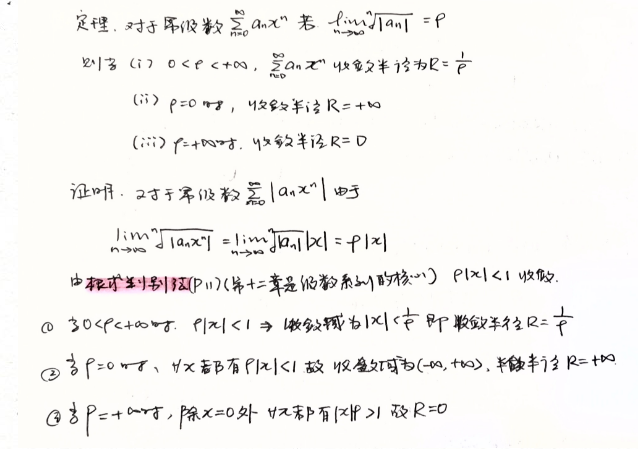 定理. 对于幂级数 ∑_{n=0}^{∞} aₙxⁿ 若 lim_{n→∞} ⁿ√|aₙ| = ρ
则当 (i) 0<ρ<+∞, ∑_{n=0}^{∞} aₙxⁿ 收敛半径为R=1/ρ
(ii) ρ=0时, 收敛半径 R=+∞
(iii) ρ=+∞时. 收敛半径 R=0
证明. 对于幂级数 ∑_{n=0}^{∞} |aₙxⁿ| 由于
lim_{n→∞} ⁿ√|aₙxⁿ| = lim_{n→∞} ⁿ√|aₙ| |x| = ρ|x|
由根式判别法(P11)(第十二章是级数系列的核心) ρ|x|<1 收敛.
① 当0<ρ<+∞时. ρ|x|<1 ⇒ 收敛域为|x|<1/ρ 即收敛半径R=1/ρ
② 当ρ=0时、∀x都有ρ|x|<1 故 收敛域为(-∞,+∞), 半径 R=+∞
③ 当ρ=+∞时, 除x=0外 ∀x都有|x|ρ>1 故R=0